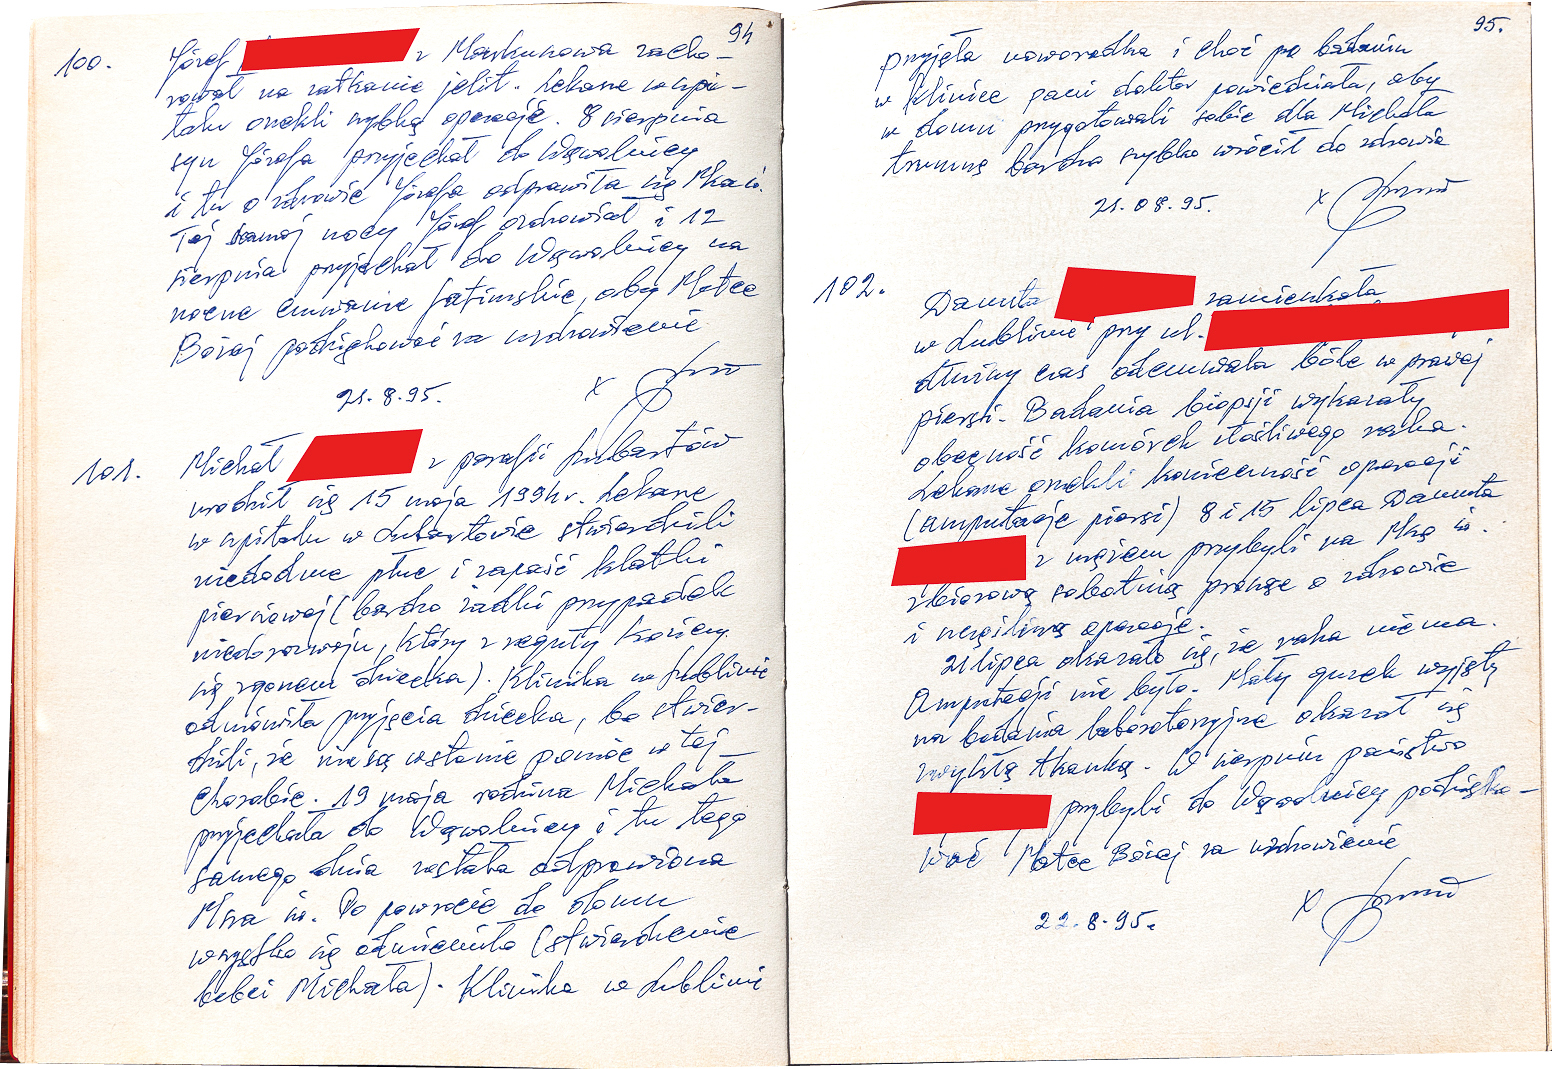 94
100. Józef z Markuszowa zacho-
rował na zatkanie jelit. Lekarze w szpi-
talu orzekli szybką operację. 8 sierpnia
syn Józefa przyjechał do Wąwolnicy
i tu o zdrowie Józefa odprawiła się Msza św.
Tej samej nocy Józef ozdrowiał i 12
sierpnia przyjechał do Wąwolnicy na
nocne czuwanie fatimskie, aby Matce
Bożej podziękować za uzdrowienie
21.8.95. x
101. Michał z parafii Lubartów
urodził się 15 maja 1994 r. Lekarze
w szpitalu w Lubartowie stwierdzili
niedodmę płuc i zapaść klatki
piersiowej (bardzo rzadki przypadek
niedorozwoju, który z reguły kończy
się zgonem dziecka). Klinika w Lublinie
odmówiła przyjęcia dziecka, bo stwier-
dzili, że nie są w stanie pomóc w tej
chorobie. 19 maja rodzina Michała
przyjechała do Wąwolnicy i tu tego
samego dnia została odprawiona
Msza św. Po powrocie do domu
wszystko się odmieniło (stwierdzenie
babci Michała). Klinika w Lublinie
95.
przyjęła noworodka i choć po badaniu
w klinice pani doktor powiedziała, aby
w domu przygotowali sobie dla Michała
trumnę bardzo szybko wrócił do zdrowia
21.08.95. x
102. Danuta zamieszkała
w Lublinie przy ul.
dłuższy czas odczuwała bóle w prawej
piersi. Badania biopsji wykazały
obecność komórek złośliwego raka.
Lekarze orzekli konieczność operacji
(amputację piersi) 8 i 15 lipca Danuta
z mężem przybyli na Mszę św.
zbiorową sobotnią prosząc o zdrowie
i szczęśliwą operację.
21 lipca okazało się, że raka nie ma.
Amputacji nie było. Mały guzek wzięty
na badania laboratoryjne okazał się
zwykłą tkanką. W sierpniu państwo
przybyli do Wąwolnicy podzięko-
wać Matce Bożej za uzdrowienie
22.8.95. x